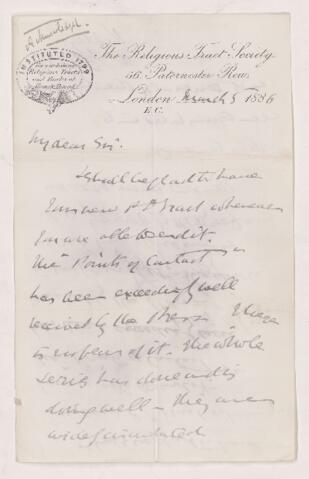 Acknowledged
INSTITUTED 1799
The Religious Tract Society
56, Paternoster Row,
London March 5 1886
E.C.
My dear Sir.
I shall be glad to have
your new Tract whenever
you are able to send it.
The "Points of Contact"
has been exceedingly well
received by the Press
of it. The whole
series has done and is
doing well – they are
widely circulated